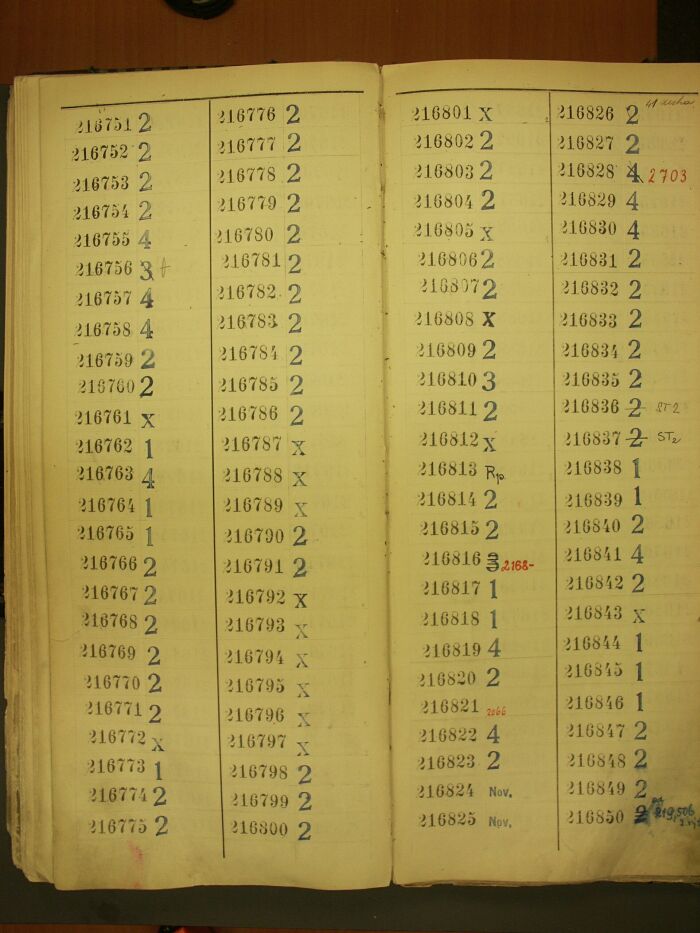 216751 2
216752 2
216753 2
216754 2
216755 4
216756 3
216757 4
216758 4
216759 2
216760 2
216761 x
216762 1
216763 4
216764 1
216765 1
216766 2
216767 2
216768 2
216769 2
216770 2
216771 2
216772 x
216773 1
216774 2
216775 2
216776 2
216777 2
216778 2
216779 2
216780 2
216781 2
216782 2
216783 2
216784 2
216785 2
216786 2
216787 x
216788 x
216789 x
216790 2
216791 2
216792 x
216793 x
216794 x
216795 x
216796 x
216797 x
216798 2
216799 2
216800 2
216801 x
216802 2
216803 2
216804 2
216805 x
216806 2
216807 2
216808 x
216809 2
216810 3
216811 2
216812 x
216813
216814 2
216815 2
216816 3 2168-
216817 1
216818 1
216819 4
216820 2
216821
216822 4
216823 2
216824 Nov.
216825 Nov.
216826 2 41
216827 2
216828 4 2703
216829 4
216830 4
216831 2
216832 2
216833 2
216834 2
216835 2
216836 2 ST2
216837 2 ST2
216838 1
216839 1
216840 2
216841 4
216842 2
216843 x
216844 1
216845 1
216846 1
216847 2
216848 2
216849 2
216850 2 219,506